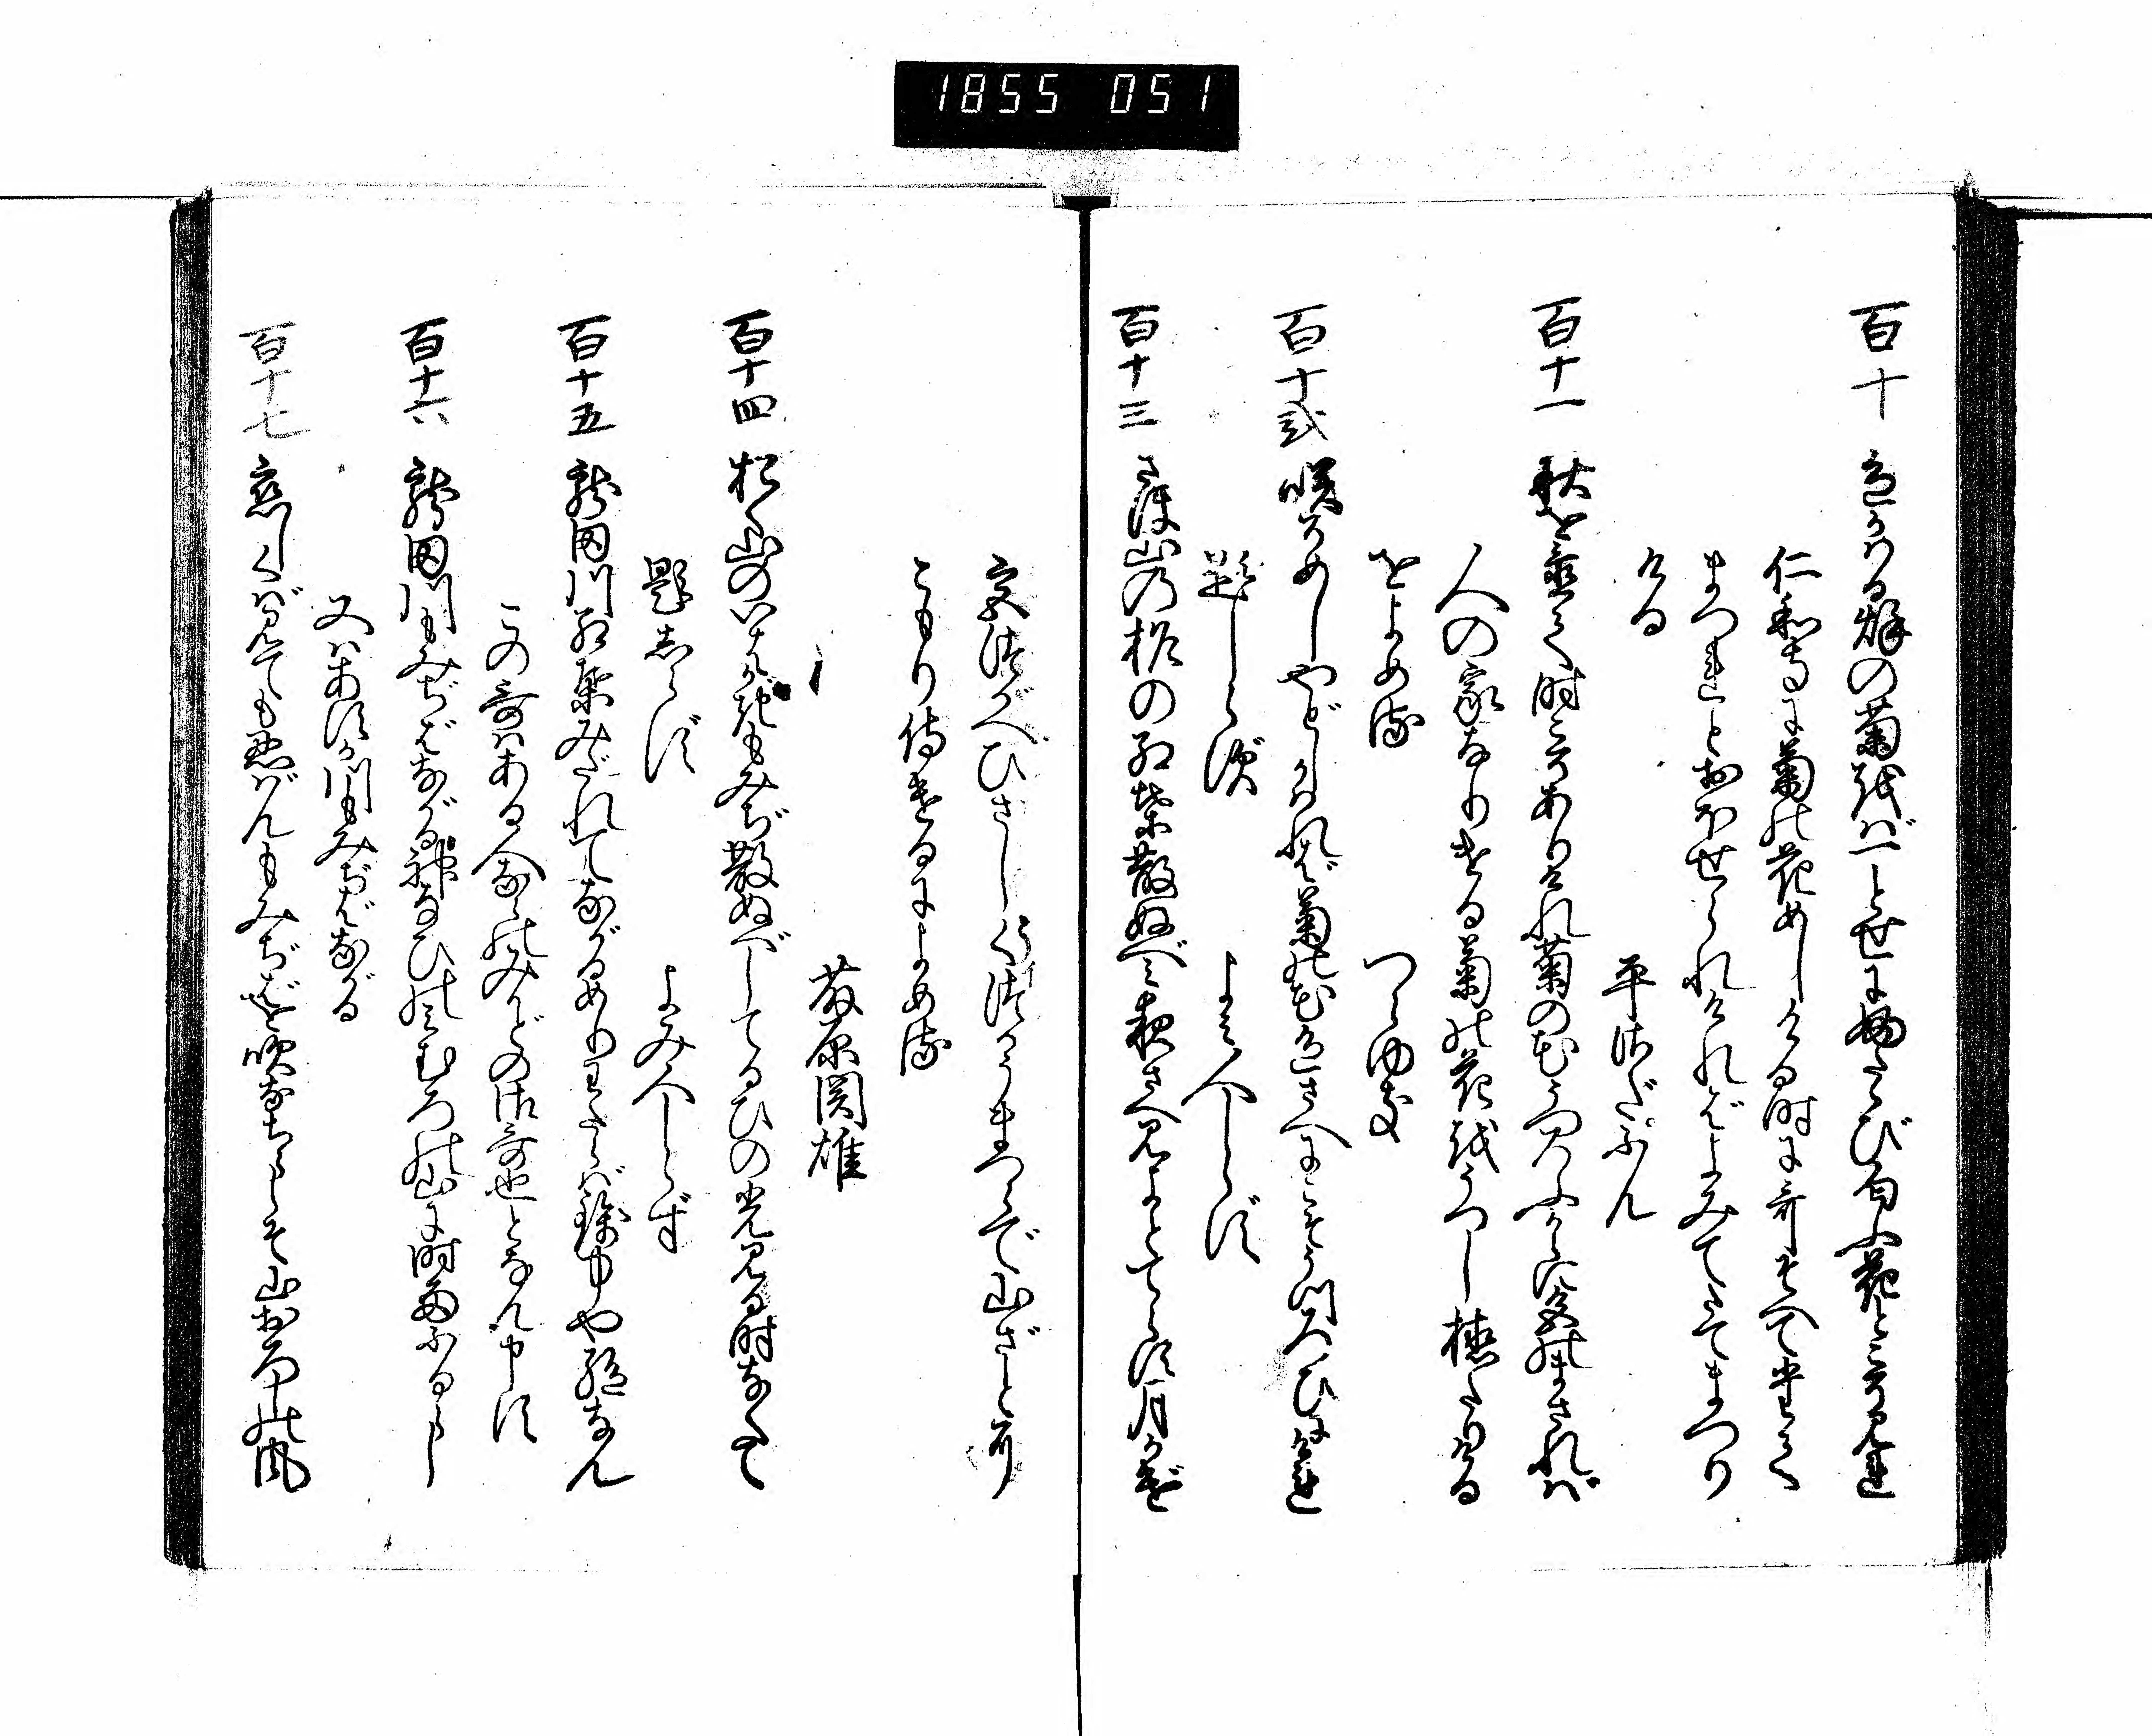 1855 051
百十 色かはる秋の菊をばひとせにふたゝび匂ふ花とこそ見れ
仁和寺に菊の花めしける時に哥そへて奉れ
まつれとおほせられければよみてたてまつり
ける
平さだぶん
百十一 秋を置て時こそありけれ菊の花うつろふからに色のまされば
人の家なりける菊の花をうつし植たりける
をよめる
つらゆき
百十弐 咲そめしやどしかはれば菊の花色さへにこそうつろひにけれ
題しらず
よみ人しらず
百十三 さほ山の柞の紅葉散ぬべみ夜さへ見よとてらす月かげ
宮づかへひさしくつかうまつらで山ざとに
こもり侍けるによめる
藤原関雄
百十四 おく山のいはがきもみぢ散ぬべしてるひの光見る時なくて
題しらず
よみ人しらず
百十五 龍田川紅葉みだれてながるめりわたらば錦中や絶なん
この哥はある人ならのみかどの御哥也となん申す
百十六 龍田川もみぢばながる神なびのみむろの山に時雨ふるらし
又はあすか川もみぢばながる
百十七 恋しくば見ても忍ばんもみぢばを吹なちらしそ山おろしの風